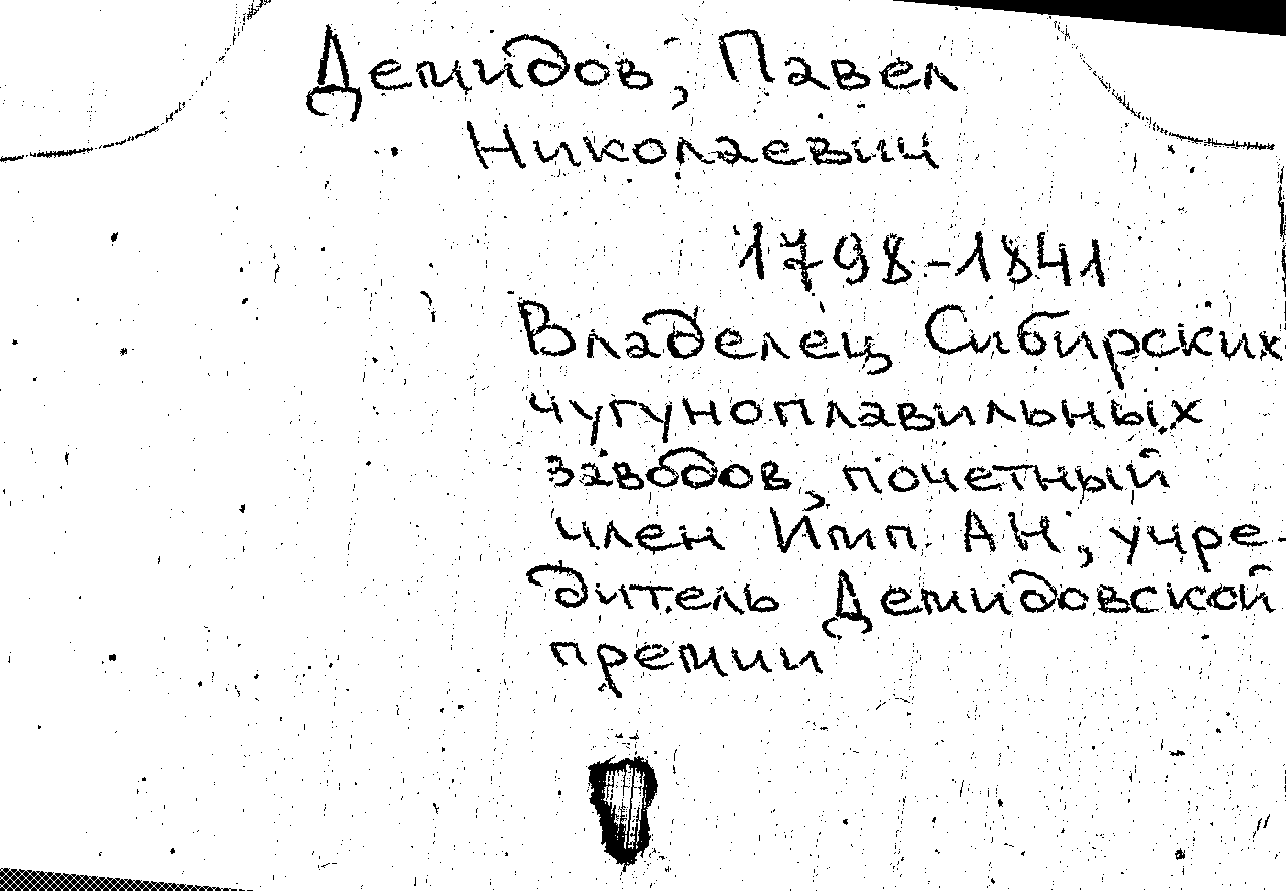 Демидов, Павел
Николаевич
1798-1841
Владелец Сибирских
чугуноплавильных
заводов, почетный
член Имп. АН, учре-
дитель Демидовской
премии